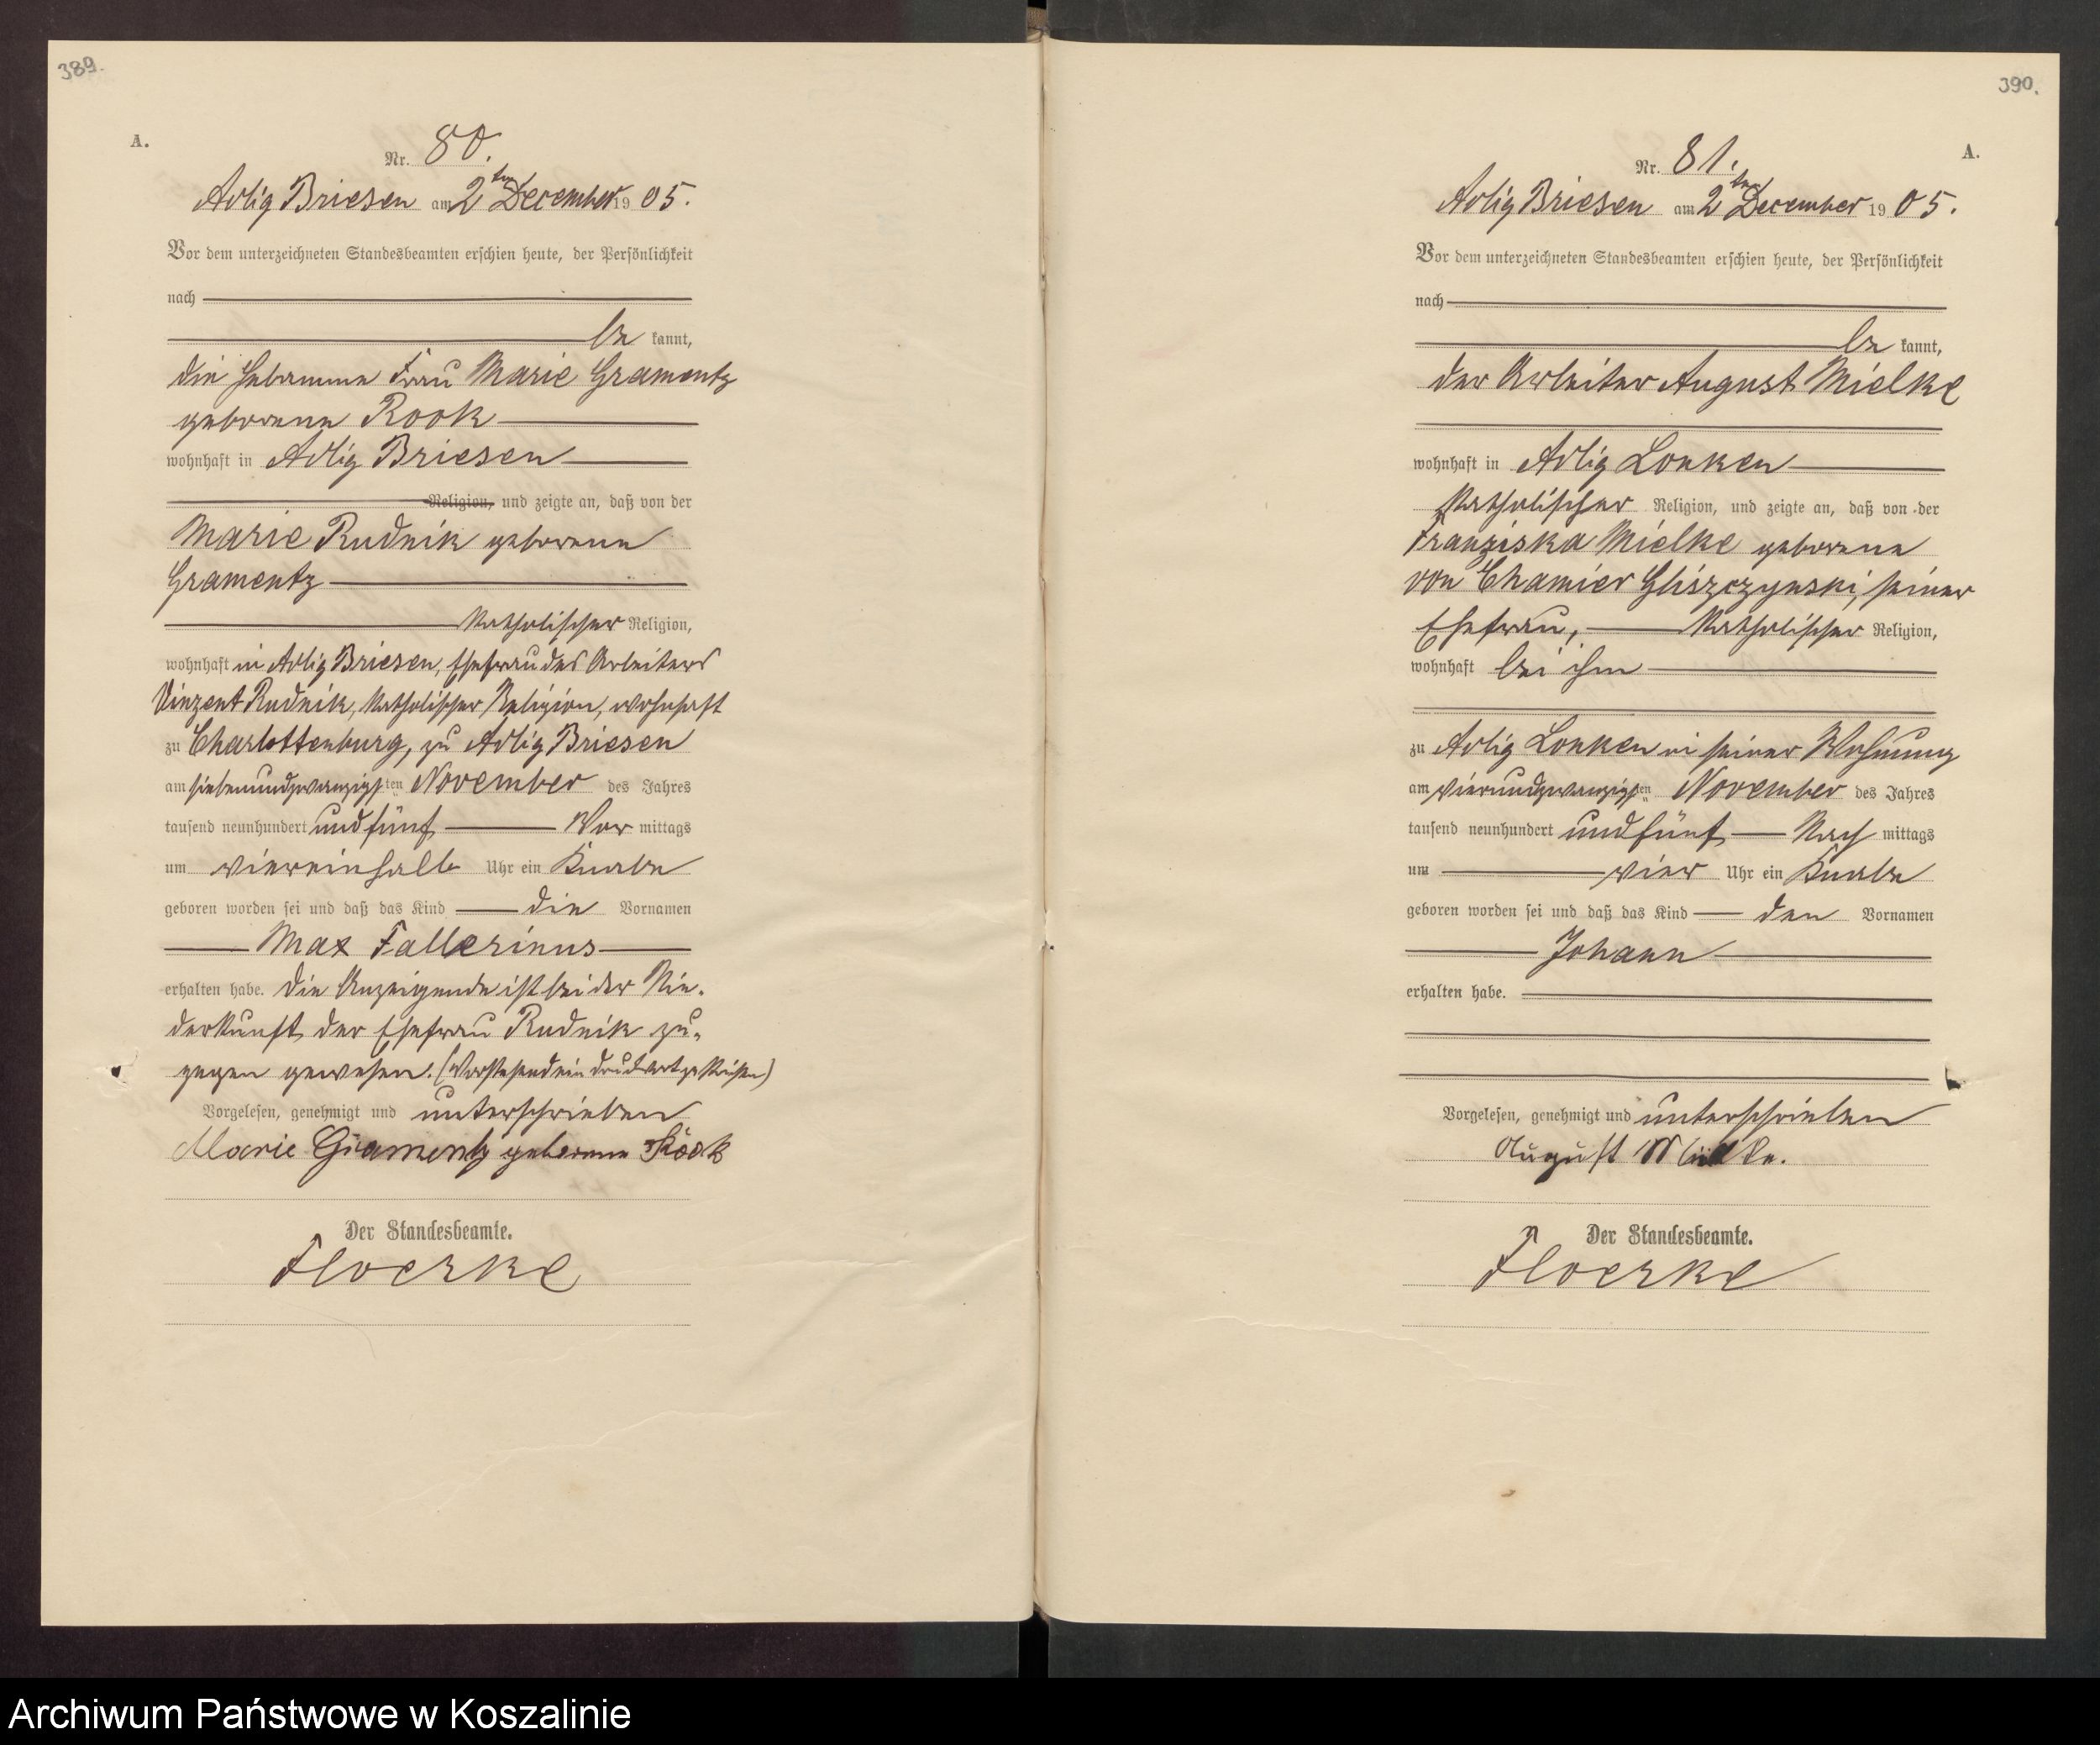 389.
A.
Nr. 80.
Adlig Briesen am 2ten December 19 05.
Vor dem unterzeichneten Standesbeamten erschien heute, der Persönlichkeit
nach
be kannt,
die Hebamme Frau Marie Gramentz
geborene Rook
wohnhaft in Adlig Briesen
Religion, und zeigte an, daß von der
Marie Rudnik geborene
Gramentz
katholischer Religion,
wohnhaft in Adlig Briesen, Ehefrau des Arbeiters
Vinzent Rudnik, katholischer Religion, wohnhaft
zu Charlottenburg, zu Adlig Briesen
am siebenundzwanzigsten November des Jahres
tausend neunhundert und fünf Vor mittags
um viereinhalb Uhr ein Knabe
geboren worden sei und daß das Kind die Vornamen
Max Fallerinus
erhalten habe. Die Anzeigende ist bei der Nie-
derkunft der Ehefrau Rudnik zu-
gegen gewesen. (Vorstehend ein Druckwort gestrichen)
Vorgelesen, genehmigt und unterschrieben
Marie Gramentz geborene Rook
Der Standesbeamte.
Floerke
390.
A.
Nr. 81.
Adlig Briesen am 2ten December 19 05.
Vor dem unterzeichneten Standesbeamten erschien heute, der Persönlichkeit
nach
be kannt,
der Arbeiter August Mielke
wohnhaft in Adlig Lonken
katholischer Religion, und zeigte an, daß von der
Franziska Mielke geborene
von Chamier Gliszczynski, seiner
Ehefrau, katholischer Religion,
wohnhaft bei ihm
zu Adlig Lonken in seiner Wohnung
am vierundzwanzigsten November des Jahres
tausend neunhundert und fünf Nach mittags
um vier Uhr ein Knabe
geboren worden sei und daß das Kind den Vornamen
Johann
erhalten habe.
Vorgelesen, genehmigt und unterschrieben
August Mielke.
Der Standesbeamte.
Floerke
Archiwum Państwowe w Koszalinie